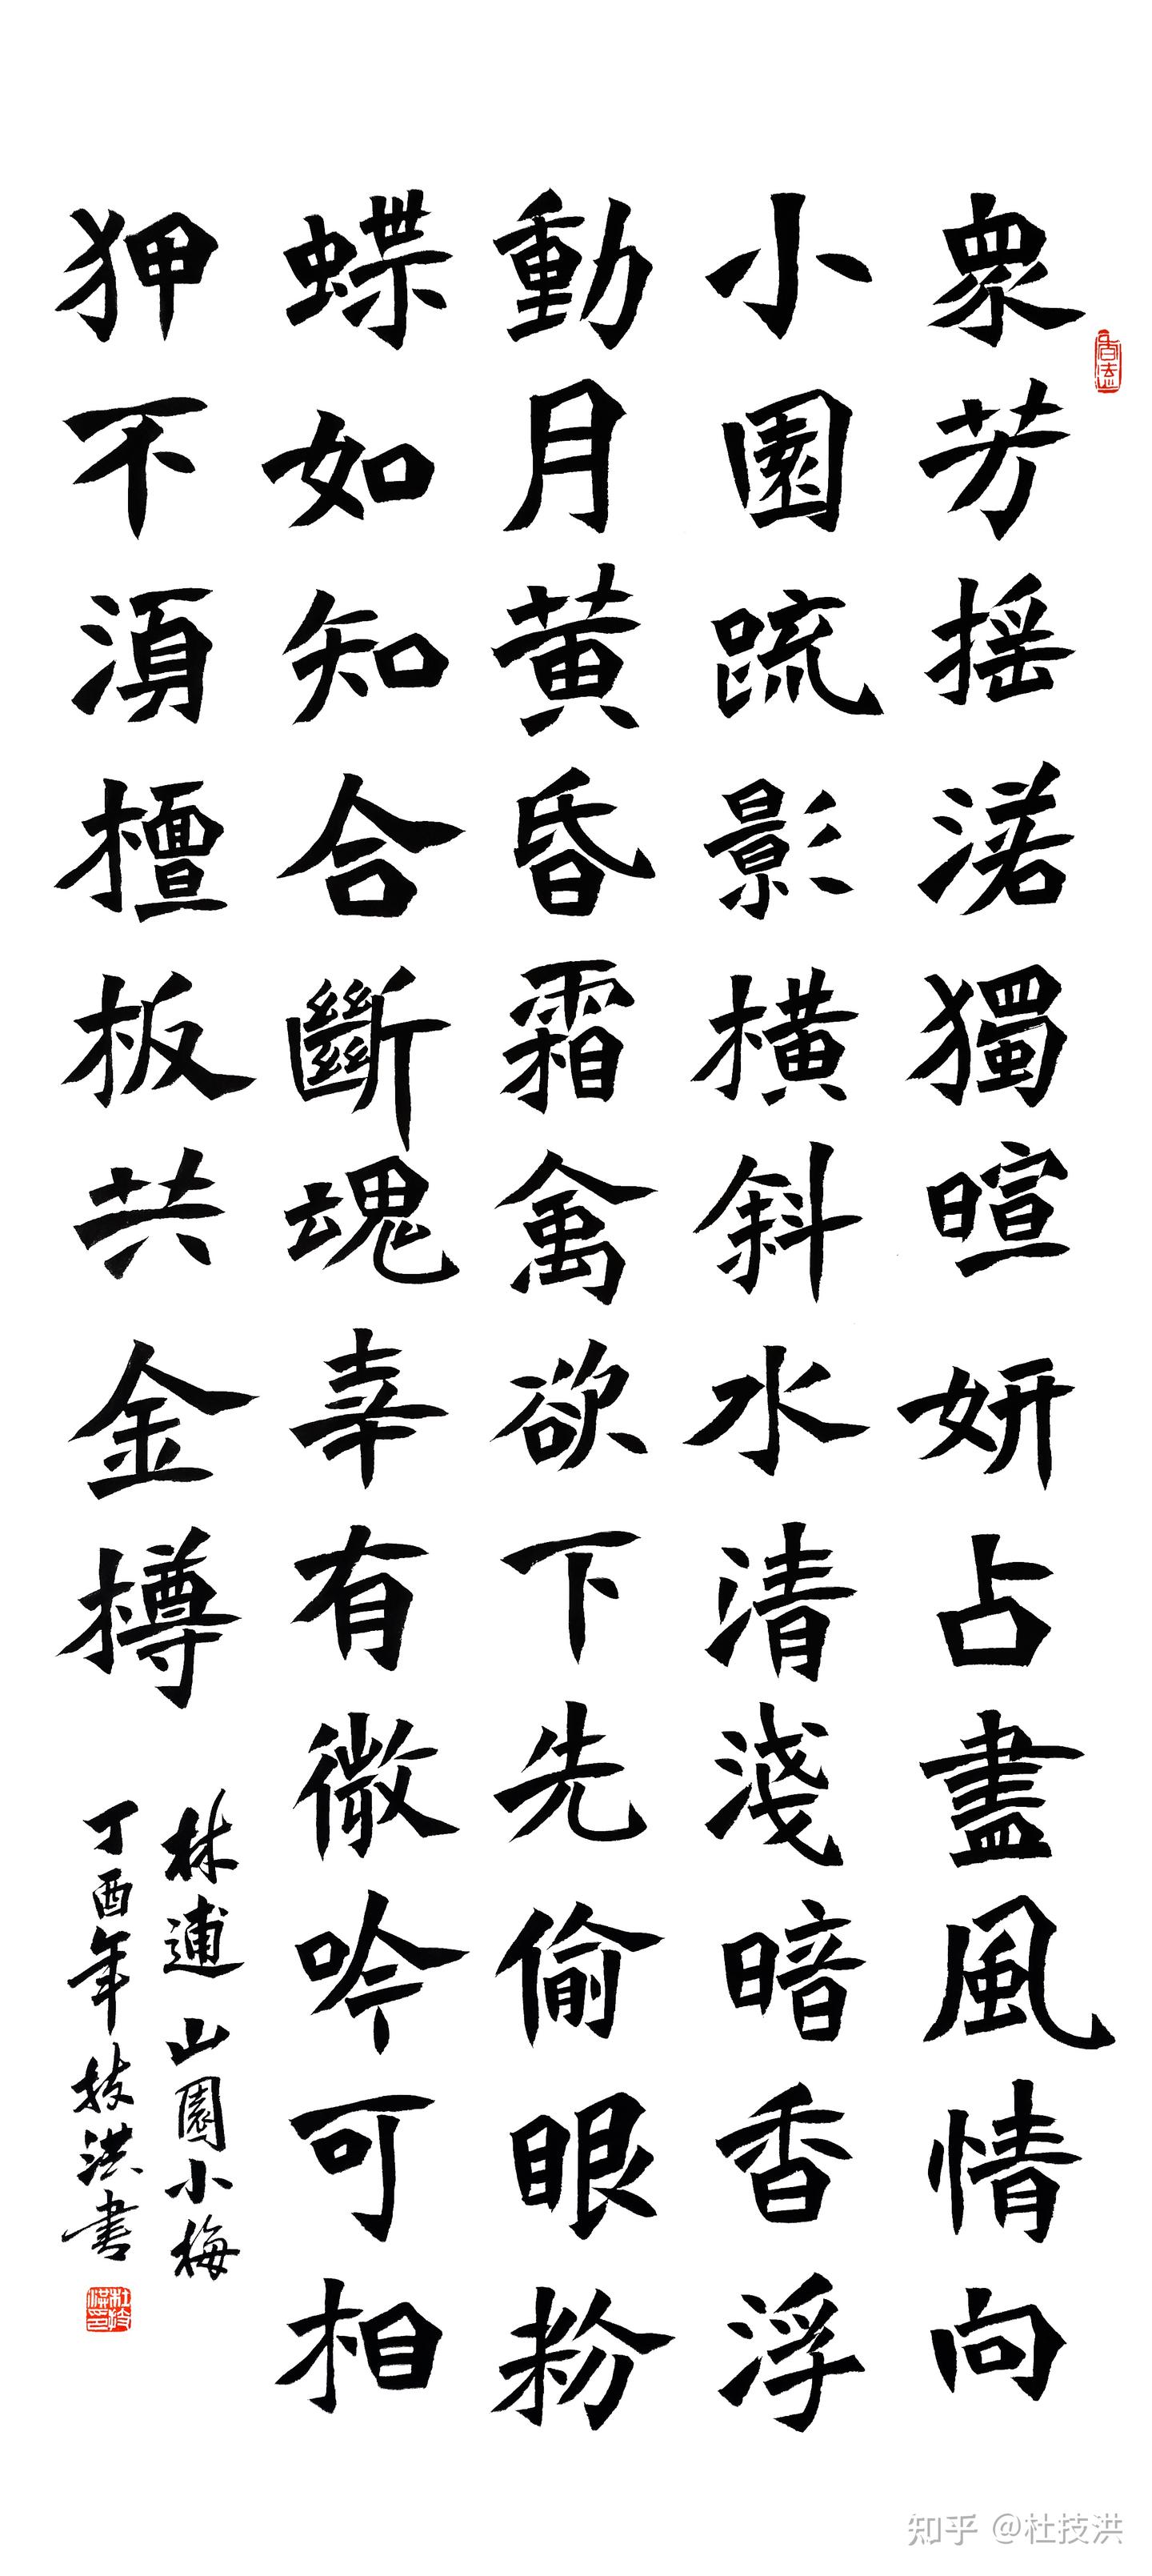 衆芳摇落獨暄妍占盡風情向
小園疏影横斜水清淺暗香浮
動月黄昏霜禽欲下先偷眼粉
蝶如知合斷魂幸有微吟可相
狎不須檀板共金樽
林逋山園小梅
丁酉年技洪書
杜技洪印
知乎 @杜技洪